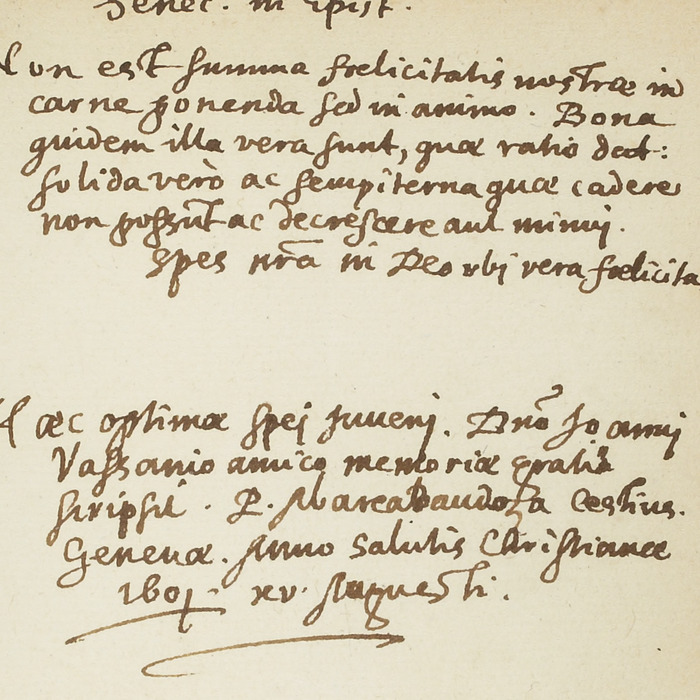 Senec. in Epist.
Non est summa fœlicitatis nostræ in
carne ponenda sed in animo. Bona
quidem illa vera sunt, quæ ratio dat:
solida verò ac sempiterna quæ cadere
non possũt ac decrescere aut minuj.
Spes nr̃a in Deo vbj vera fœlicita
Hæc optimæ spej Juvenj. Dnõ Joannj
Vassanio amico memoriæ gratia
scripsit. P.
Genevæ. Anno Salutis Christianæ
1601. xv. Augusti.